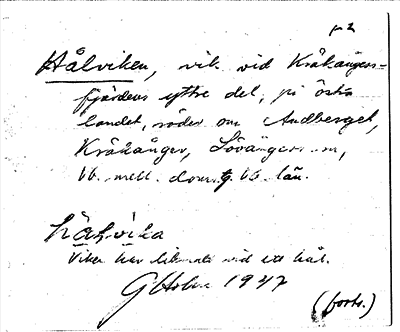 Hålviken, vik vid Kråkångers-
fjärdens yttre del, på östra
landet, söder om Andberget,
Kråkånger, Lövångers sn,
Vb. mell. domsg. Vb. län.
hålvika
Viken har liknats vid ett hål.
G Holm 1947
(forts.)